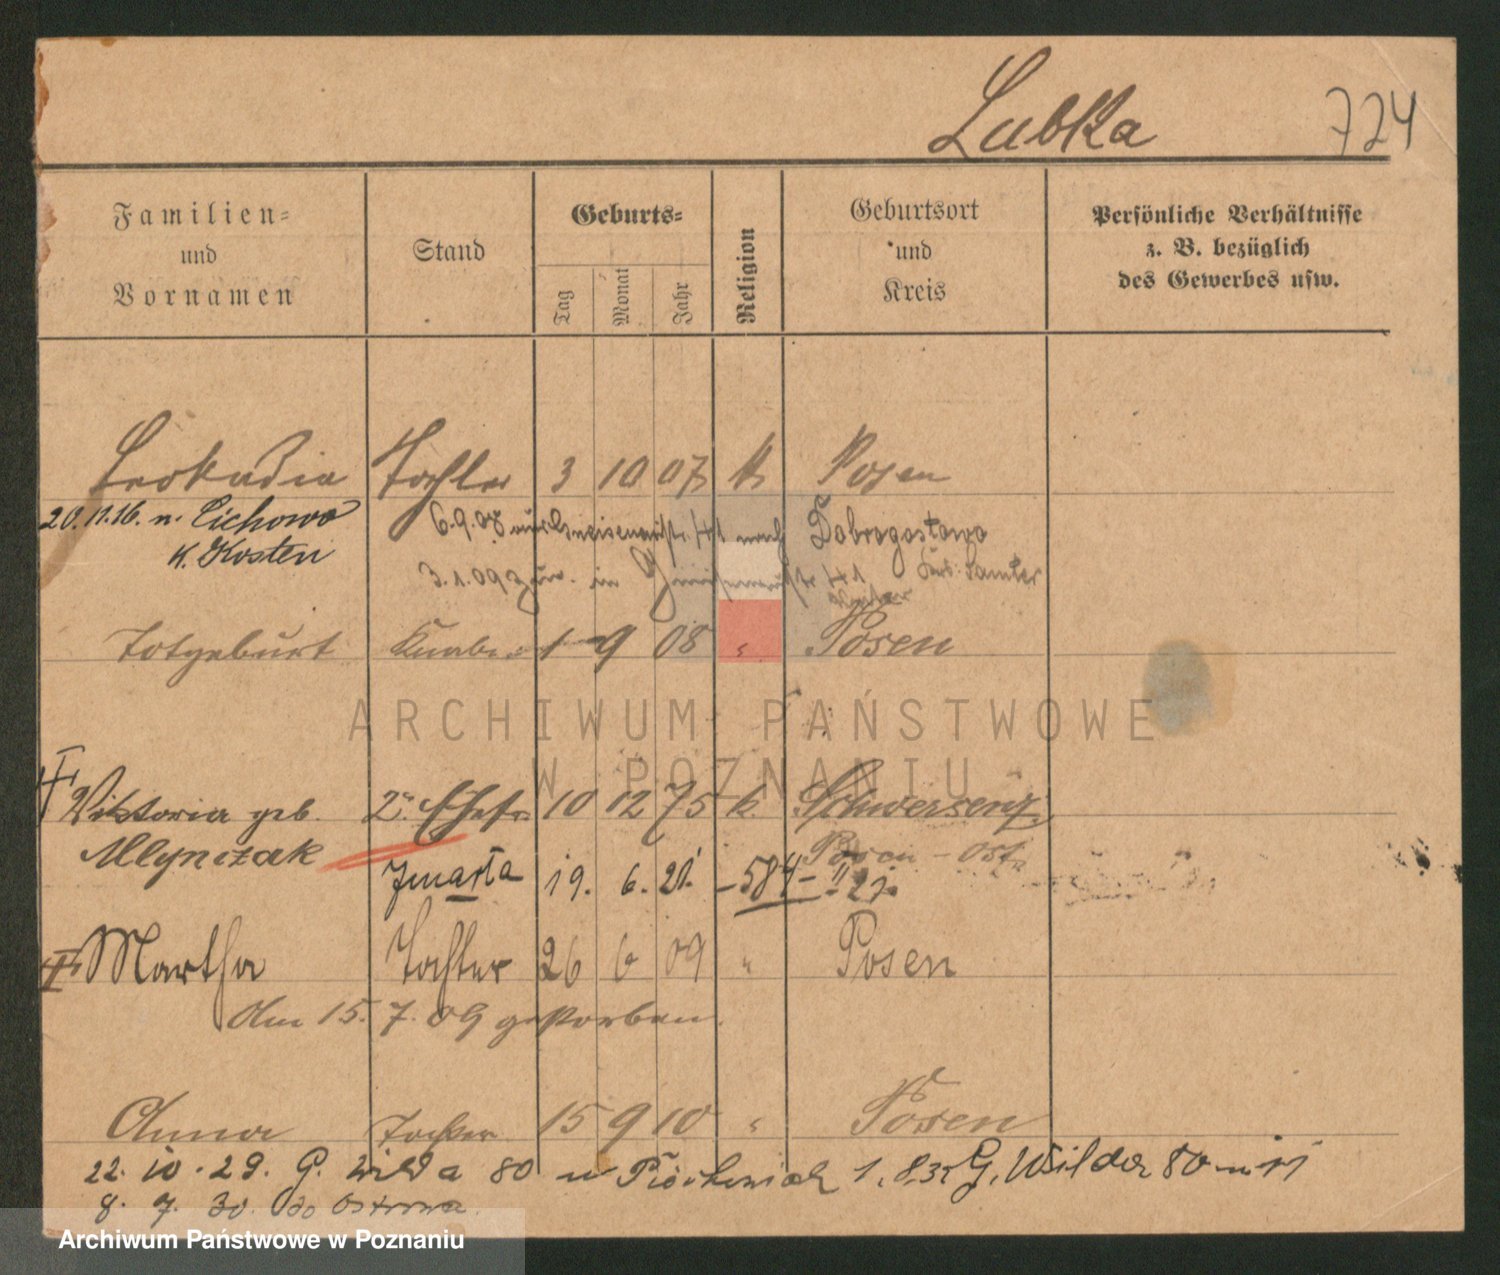 Lubka 724
Familien=
und
Vornamen
Stand
Geburts=
Tag
Monat
Jahr
Religion
Geburtsort
und
Kreis
Persönliche Verhältnisse
z. B. bezüglich
des Gewerbes usw.
Leokadia Tochter 3 10 07 k Posen
20.11.16. n. Cichowo
K. Kosten
6.9.08 nach Dobrogostowo
3.1.09 zur. in 41 Samter
Totgeburt Knabe 1 9 08 " Posen
ARCHIWUM PAŃSTWOWE
W POZNANIU
Viktoria geb. 2te Ehefr. 10 12 75 k. Schwersenz
Mlynczak Posen-Ost
Zmarła 19. 6. 21. -584- 21.
Martha Tochter 26 6 09 " Posen
Am 15. 7. 09 gestorben.
Anna Tochter 15 9 10 " Posen
22. 10. 29. G. Wilda 80 u 1. 8.35 G. Wilda 80 m 11
8. 7. 30. do Ostrowa.
Archiwum Państwowe w Poznaniu